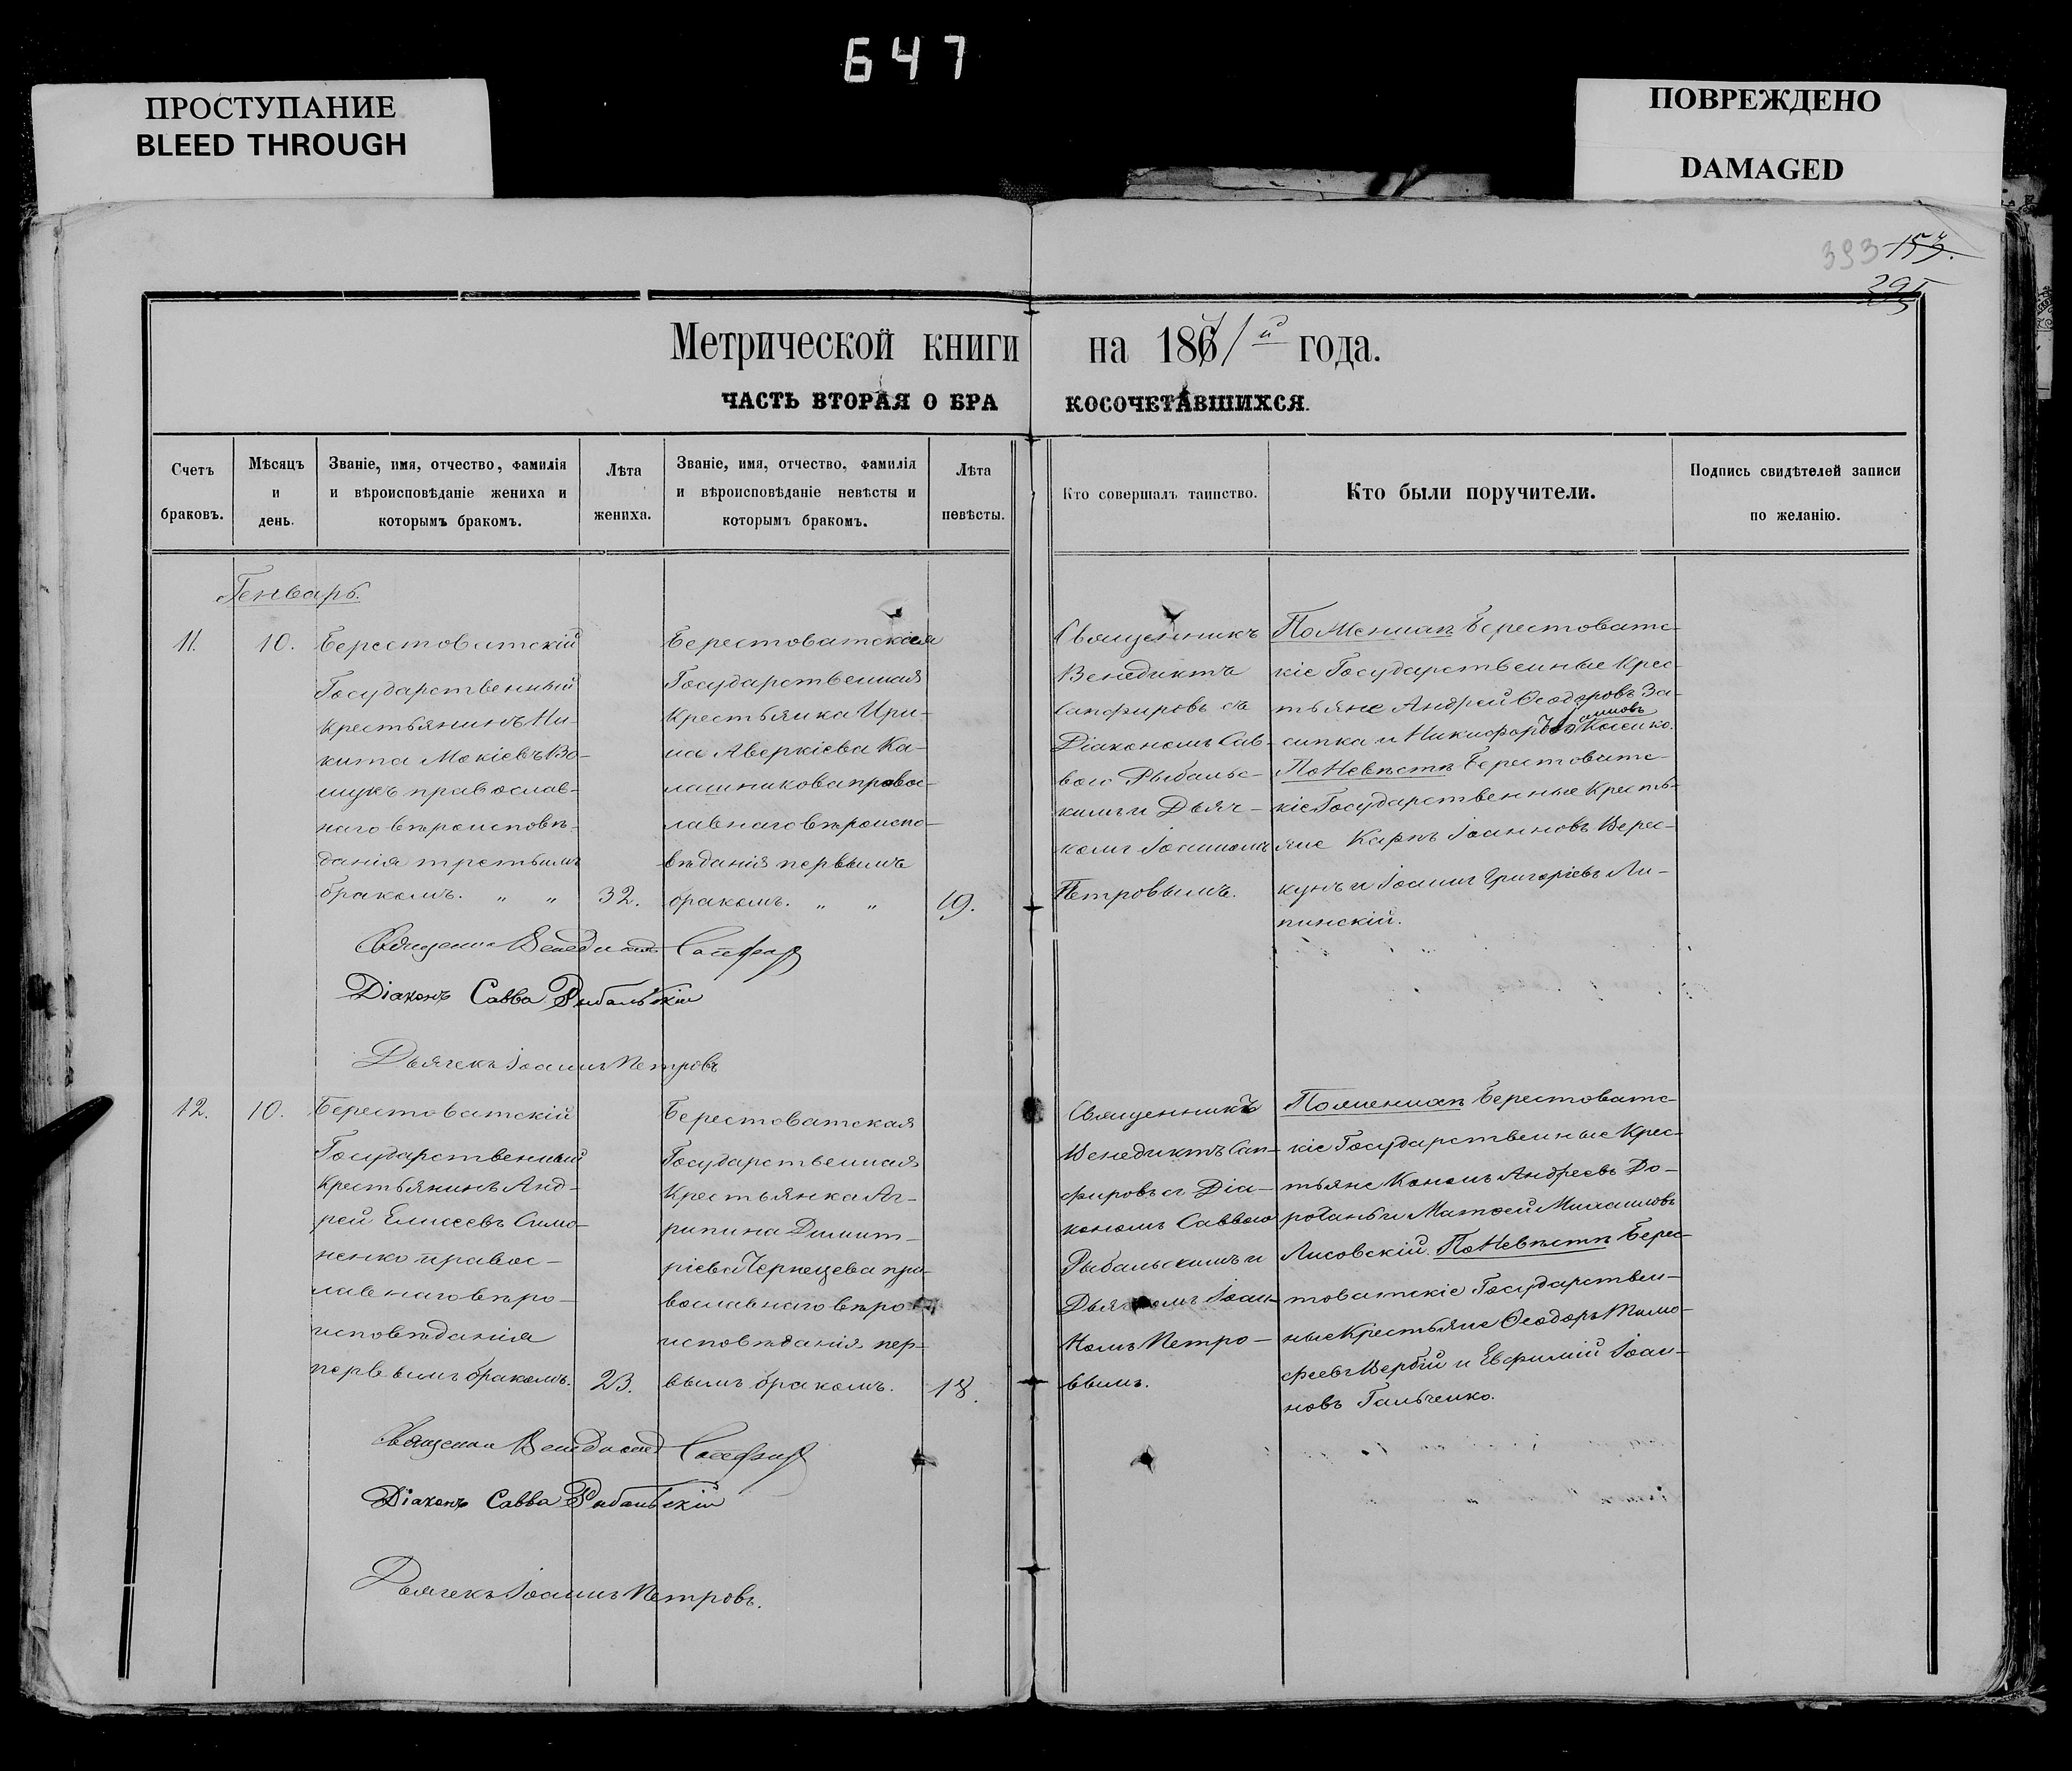 647
ПРОСТУПАНИЕ
BLEED THROUGH
ПОВРЕЖДЕНО
DAMAGED
393
295
Метрической книги на 1871/й года.
ЧАСТЬ ВТОРАЯ О БРАКОСОЧЕТАВШИХСЯ.
Счетъ
браковъ.
Мѣсяцъ
и
день.
Званіе, имя, отчество, фамилія
и вѣроисповѣданіе жениха и
которымъ бракомъ.
Лѣта
жениха.
Званіе, имя, отчество, фамилія
и вѣроисповѣданіе невѣсты и
которымъ бракомъ.
Лѣта
невѣсты.
Кто совершалъ таинство.
Кто были поручители.
Подпись свидѣтелей записи
по желанію.
Генварь.
11.
10.
Берестоватскій
Государственный
Крестьянинъ Ни-
кита Мокіевъ Во-
щукъ православ-
наго вѣроисповѣ-
данія третьимъ
бракомъ. „ „
32.
Берестоватская
Государственная
Крестьянка Ири-
на Аверкіева Ка-
лашникова правос-
лавнаго вѣроиспо-
вѣданія первымъ
бракомъ. „ „
19.
Священникъ
Венедиктъ
Сапфировъ съ
Діакономъ Сав-
вою Рыбальс-
кимъ и Дьяч-
комъ Іоанномъ
Петровымъ.
По Женихѣ Берестоватс-
кіе Государственные Крес-
тьяне Андрей Ѳеодоровъ За-
сипка и Никифоръ Іоанновъ Косенко.
По Невѣстѣ Берестоватс-
кіе Государственные Кресть-
яне Карпъ Іоанновъ Верес-
кунъ и Іоаннъ Григоріевъ Ли-
пинскій.
Священникъ Венедиктъ Сапфировъ
Діаконъ Савва Рыбальскій
Дьячекъ Іоаннъ Петровъ
12.
10.
Берестоватскій
Государственный
Крестьянинъ Анд-
рей Елисеевъ Симо-
ненко правос-
лавнаго вѣро-
исповѣданія
первымъ бракомъ.
23.
Берестоватская
Государственная
Крестьянка Аг-
рипина Димит-
ріева Чернецева пра-
вославнаго вѣро-
исповѣданія пер-
вымъ бракомъ.
18.
Священникъ
Венедиктъ Сап-
фировъ съ Діа-
кономъ Саввою
Рыбальскимъ и
Дьячкомъ Іоан-
номъ Петро-
вымъ.
По женихѣ Берестоватс-
кіе Государственные Крес-
тьяне Кононъ Андреевъ До-
роганъ и Матѳей Михаиловъ
Лисовскій. По Невѣстѣ Берес-
товатскіе Государствен-
ные Крестьяне Ѳеодоръ Тимо-
феевъ Вербій и Евфимій Іоан-
новъ Гальченко.
Священникъ Венедиктъ Сапфировъ
Діаконъ Савва Рыбальскій
Дьячекъ Іоаннъ Петровъ.